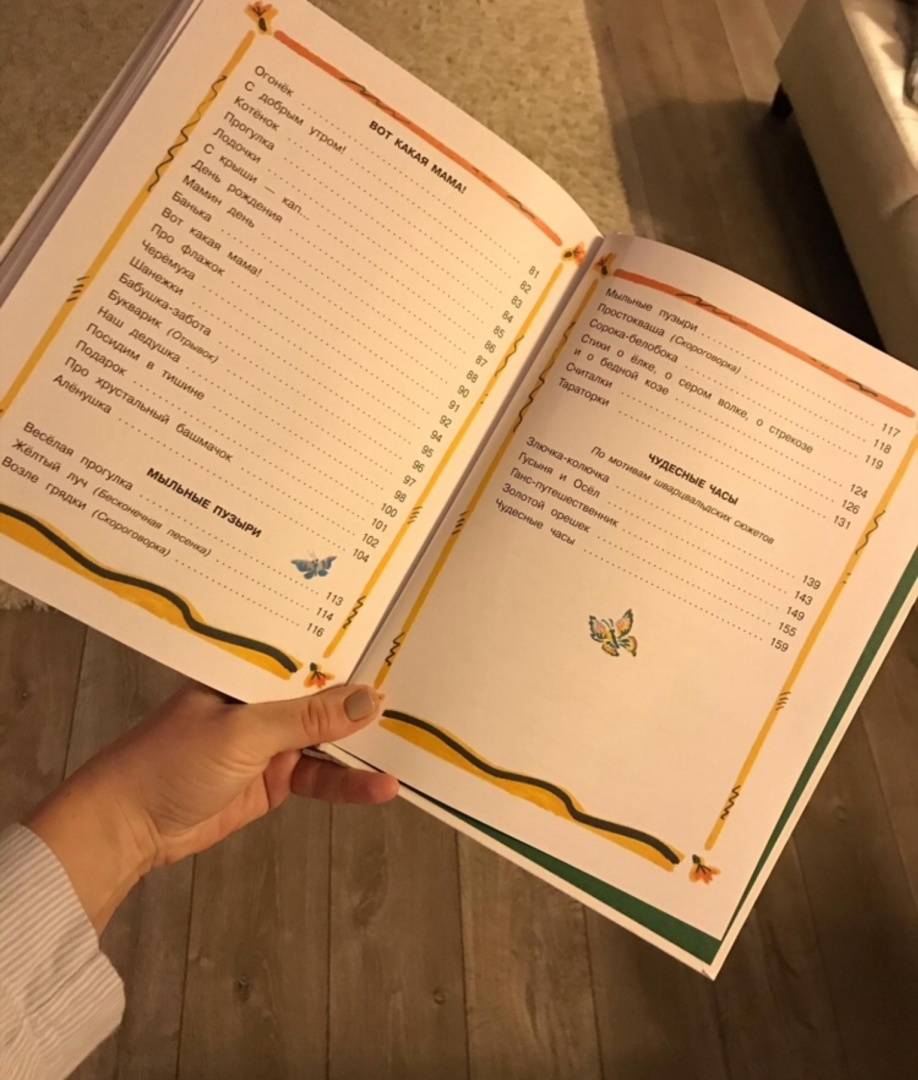 ВОТ КАКАЯ МАМА!
Огонёк 81
С добрым утром! 82
Котёнок 83
Прогулка 84
Лодочки 85
С крыши — кап... 86
День рождения 87
Мамин день 88
Банька 90
Вот какая мама! 91
Про флажок 92
Черёмуха 94
Шанежки 95
Бабушка-забота 96
Букварик (Отрывок) 97
Наш дедушка 98
Посидим в тишине 100
Подарок 101
Про хрустальный башмачок 102
Алёнушка 104
МЫЛЬНЫЕ ПУЗЫРИ
Весёлая прогулка 113
Жёлтый луч (Бесконечная песенка) 114
Возле грядки (Скороговорка) 116
Мыльные пузыри 117
Простокваша (Скороговорка) 118
Сорока-белобока 119
Стихи о ёлке, о сером волке, о стрекозе
и о бедной козе 124
Считалки 126
Тараторки 131
ЧУДЕСНЫЕ ЧАСЫ
По мотивам шварцвальдских сюжетов
Злючка-колючка 139
Гусыня и Осёл 143
Ганс-путешественник 149
Золотой орешек 155
Чудесные часы 159